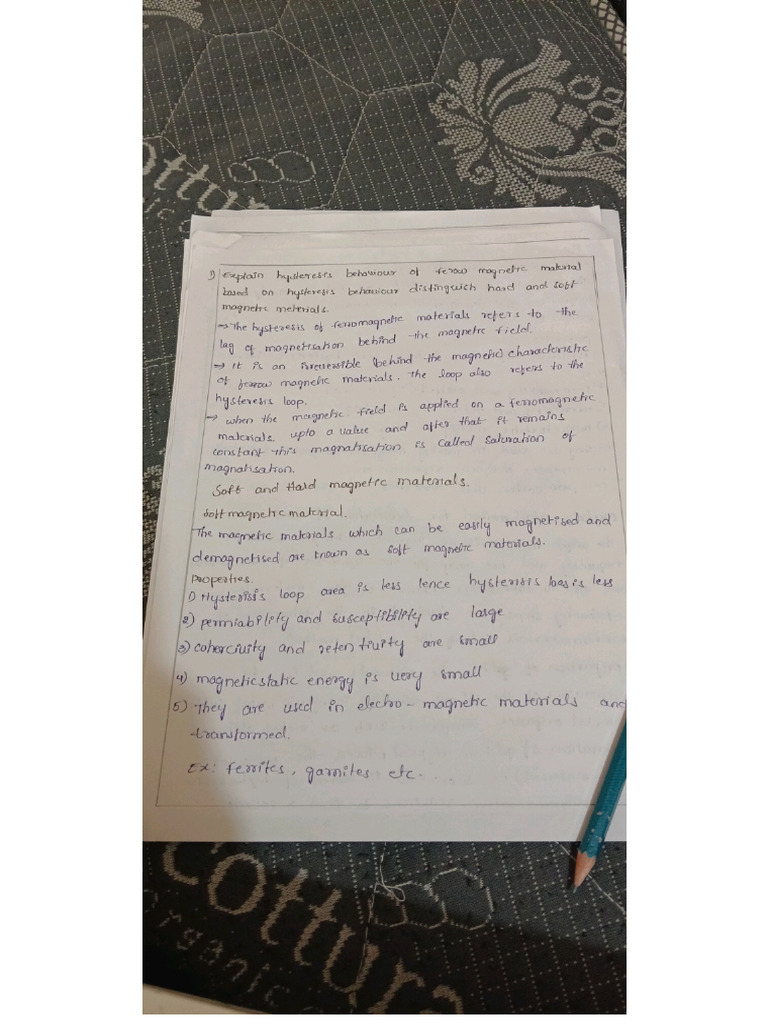 ottur
nic c
1) Explain hysteresis behaviour of ferow magnetic material
based on hysteresis behaviour distinguish hard and soft
magnetic meterials.
→ The hysteresis of ferromagnetic materials refers to the
lag of magnetisation behind the magnetic field.
→ It is an irreversible (behind the magnetic) characteristic
of ferrow magnetic materials. The loop also refers to the
hysteresis loop.
→ when the magnetic field is applied on a ferromagnetic
materials. upto a value and after that it remains
constant this magnatisation is called Saturation of
magnatisation.
Soft and Hard magnetic materials.
Soft magnetic material.
The magnetic materials which can be easily magnetised and
demagnetised are known as soft magnetic materials.
Properties.
1) Hysterisis loop area is less lence hysterisis loss is less
2) permiability and susceptibility are large
3) cohercivity and retentivity are small
4) magneticstatic energy is very small
5) They are used in electro-magnetic materials and
transformed.
Ex: ferrites, garnites etc....
cottura
organic